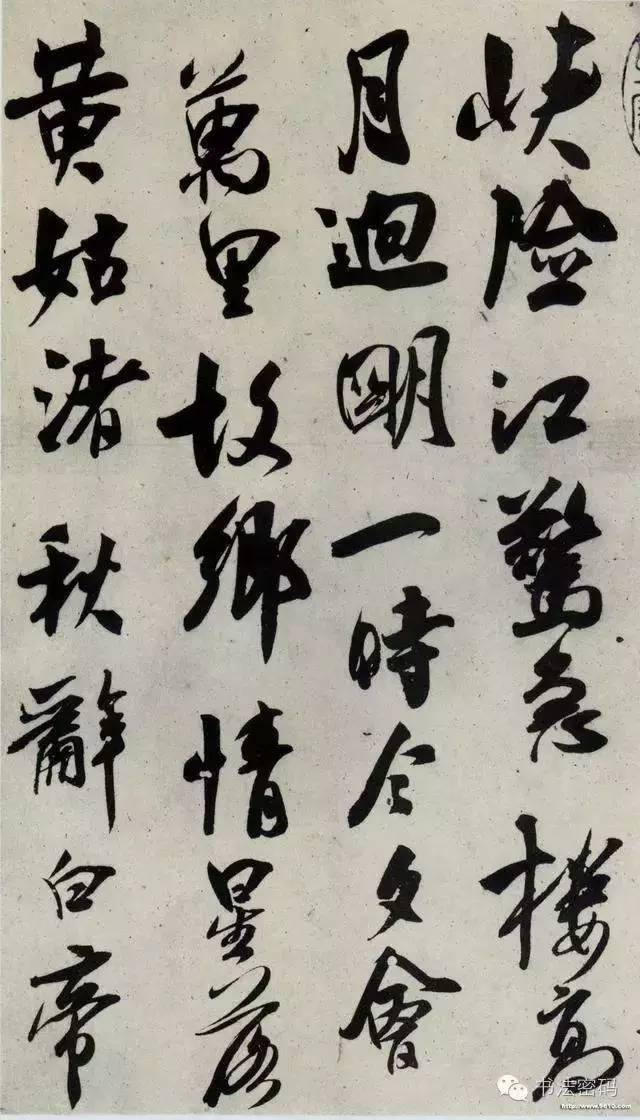 峡险江驚急樓高
月迥明一時今夕會
萬里故鄉情星落
黄姑渚秋辭白帝
书法密码
http://www.5610.com